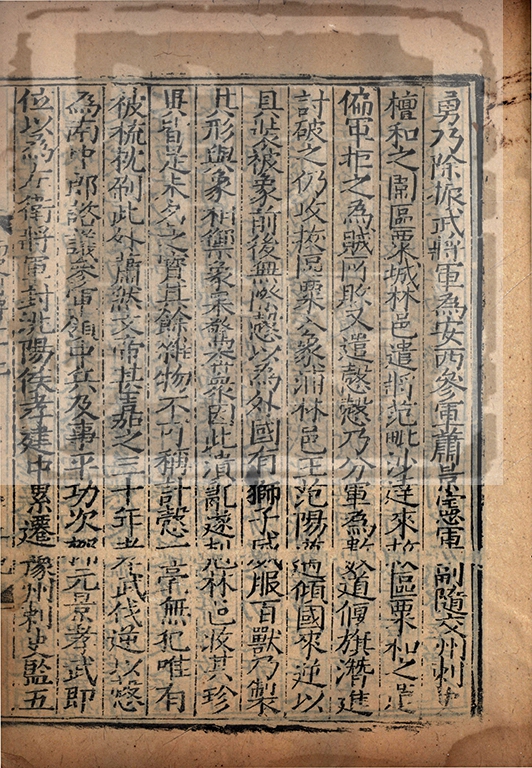 勇乃除振武將軍為安西參軍蕭景憲軍副隨交州刺史
檀和之圍區粟城林邑遣將范毗沙達來救區粟和之遣
偏軍拒之為賊所敗又遣慤慤乃分軍為數道偃旗潛進
討破之仍收拔區粟入象浦林邑王范陽邁傾國來逆以
具裝被象前後無際慤以為外國有獅子威服百獸乃製
其形與象相禦象果驚奔眾因此潰亂遂剋林邑收其珍
異皆是未名之寶其餘雜物不可稱計慤一毫無犯唯有
被梳枕刷此外蕭然文帝甚嘉之三十年孝武伐逆以慤
為南中郎諮議參軍領中兵及事平功次柳元景孝武即
位以為左衛將軍封洮陽侯孝建中累遷豫州刺史監五